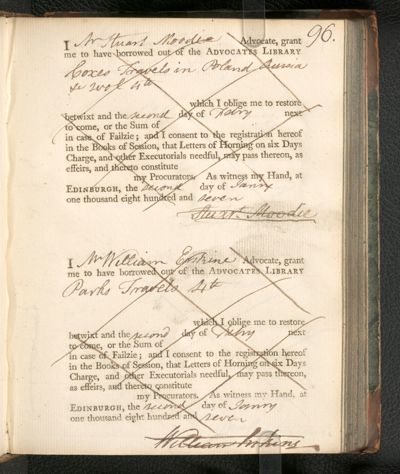 96.
I Mr Stuart Moodie Advocate, grant
me to have borrowed out of the ADVOCATES LIBRARY
Coxes Travels in Poland Russia
&c vol 4th
which I oblige me to restore
betwixt and the second day of Febry next
to come, or the Sum of
in case of Failzie; and I consent to the registration hereof
in the Books of Session, that Letters of Horning on six Days
Charge, and other Executorials needful, may pass thereon, as
effeirs, and thereto constitute
my Procurators. As witness my Hand, at
EDINBURGH, the second day of Janry
one thousand eight hundred and seven
Stuart Moodie
I Mr William Erskine Advocate, grant
me to have borrowed out of the ADVOCATES LIBRARY
Parks Travels 4th
which I oblige me to restore
betwixt and the second day of Febry next
to come, or the Sum of
in case of Failzie; and I consent to the registration hereof
in the Books of Session, that Letters of Horning on six Days
Charge, and other Executorials needful, may pass thereon,
as effeirs, and thereto constitute
my Procurators. As witness my Hand, at
EDINBURGH, the second day of Janry
one thousand eight hundred and seven
William Erskine